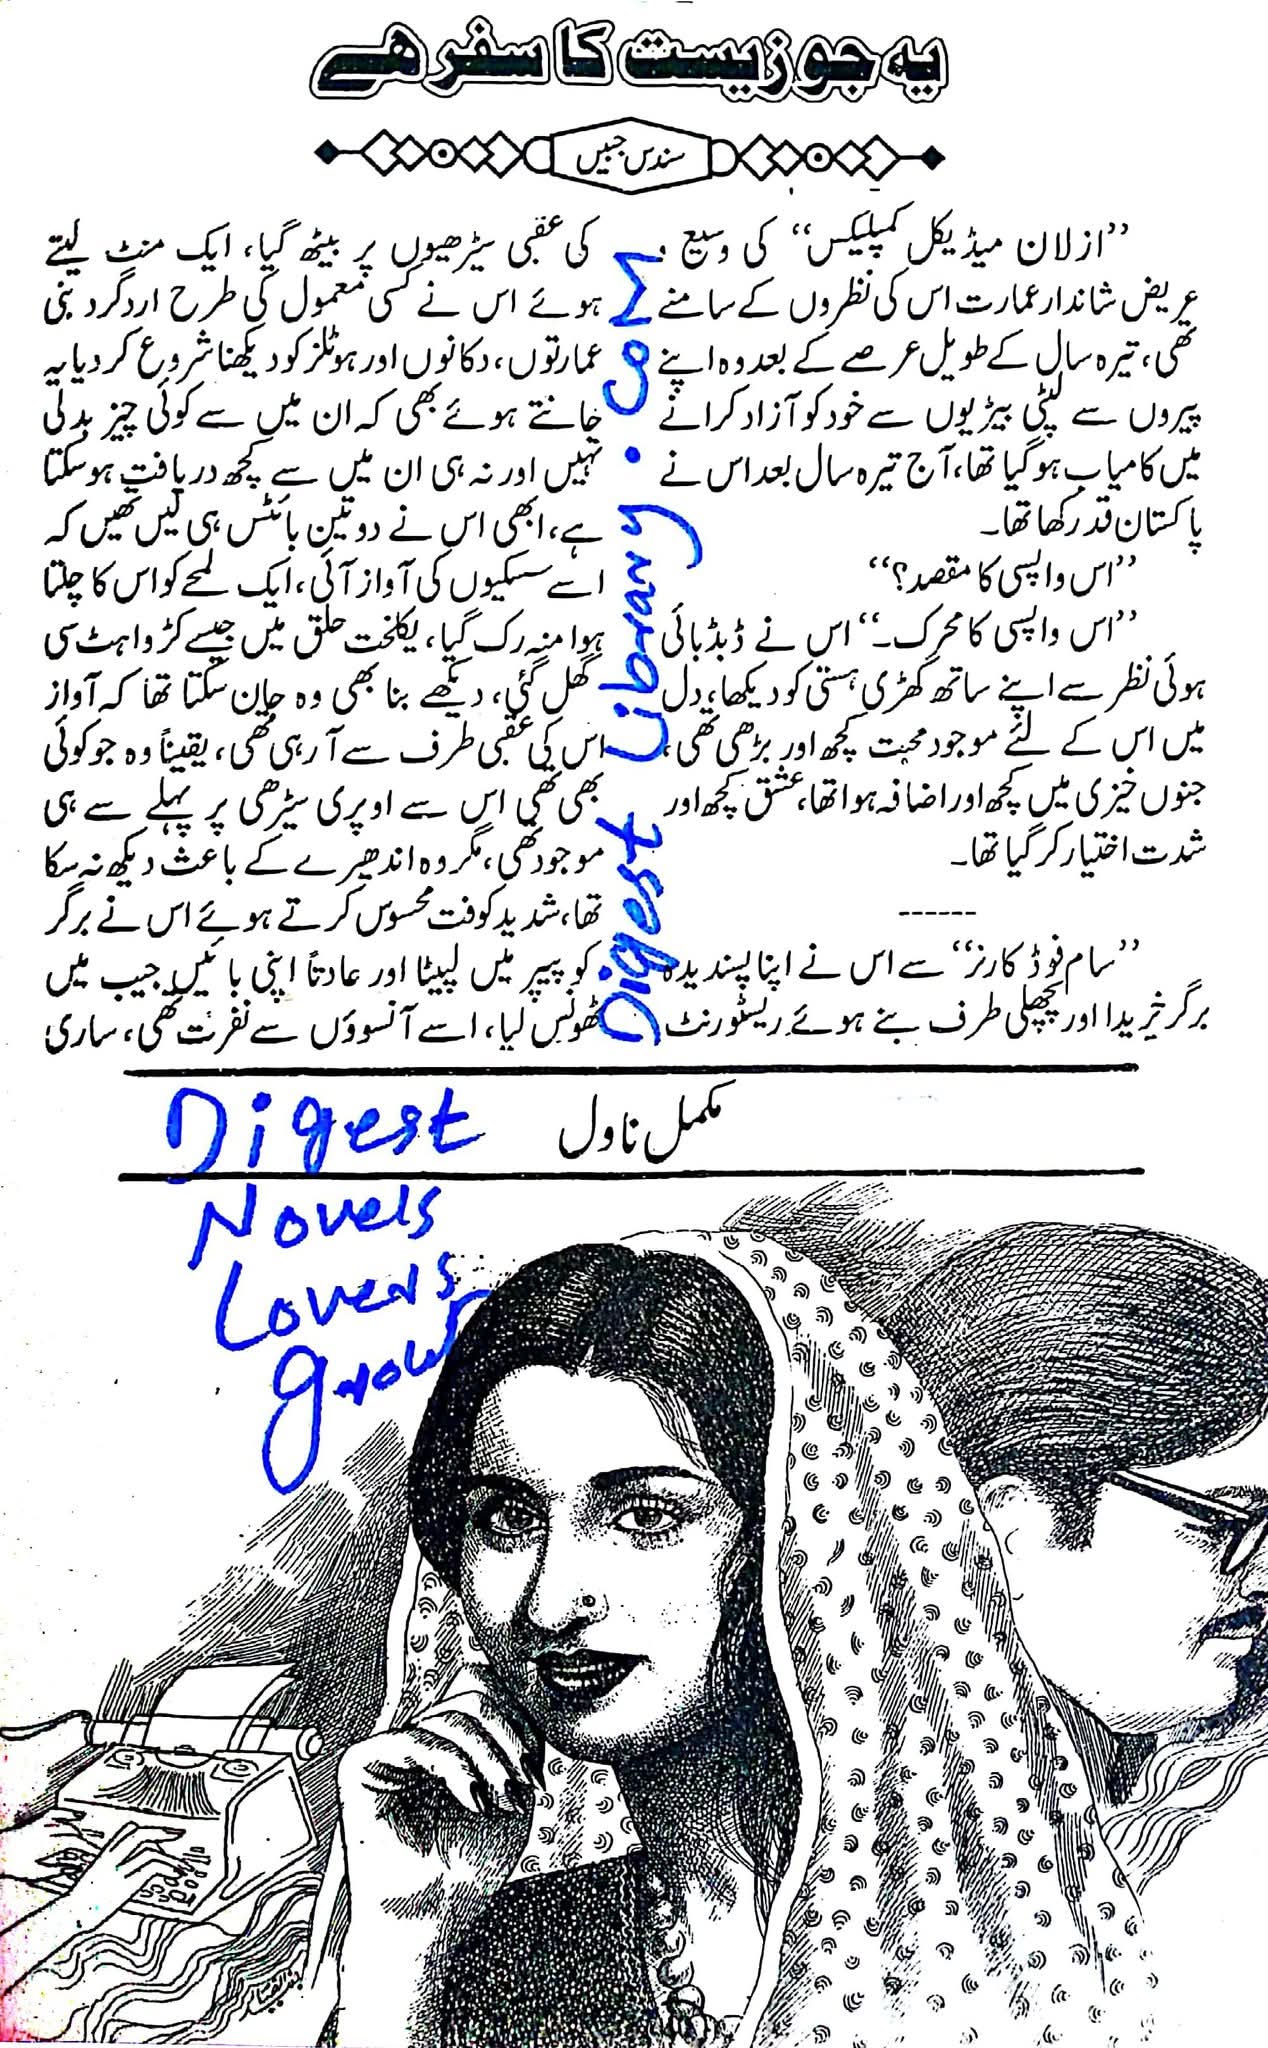 یہ جو زیست کا سفر ھے
سندس جبیں
”ازلان میڈیکل کمپلیکس“ کی وسیع و
عریض شاندار عمارت اس کی نظروں کے سامنے
تھی، تیرہ سال کے طویل عرصے کے بعد وہ اپنے
پیروں سے لپٹی بیڑیوں سے خود کو آزاد کرانے
میں کامیاب ہو گیا تھا، آج تیرہ سال بعد اس نے
پاکستان قدر رکھا تھا۔
”اس واپسی کا مقصد؟“
”اس واپسی کا محرک۔“ اس نے ڈبڈبائی
ہوئی نظر سے اپنے ساتھ کھڑی ہستی کو دیکھا، دل
میں اس کے لئے موجود محبت کچھ اور بڑھی تھی،
جنوں خیزی میں کچھ اور اضافہ ہوا تھا، عشق کچھ اور
شدت اختیار کر گیا تھا۔
------
”سام فوڈ کارنر“ سے اس نے اپنا پسندیدہ
برگر خریدا اور پچھلی طرف بنے ہوئے ریسٹورنٹ
کی عقبی سیڑھیوں پر بیٹھ گیا، ایک منٹ لیتے
ہوئے اس نے کسی معمول کی طرح اردگرد بنی
عمارتوں، دکانوں اور ہوٹلز کو دیکھنا شروع کر دیا یہ
جانتے ہوئے بھی کہ ان میں سے کوئی چیز بدلی
نہیں اور نہ ہی ان میں سے کچھ دریافت ہو سکتا
ہے، ابھی اس نے دو تین بائٹس ہی لیں تھیں کہ
اسے سسکیوں کی آواز آئی، ایک لمحے کو اس کا چلتا
ہوا منہ رک گیا، یکلخت حلق میں جیسے کڑواہٹ سی
گھل گئی، دیکھے بنا بھی وہ جان سکتا تھا کہ آواز
اس کی عقبی طرف سے آ رہی تھی، یقیناً وہ جو کوئی
بھی تھی اس سے اوپری سیڑھی پر پہلے سے ہی
موجود تھی، مگر وہ اندھیرے کے باعث دیکھ نہ سکا
تھا، شدید کوفت محسوس کرتے ہوئے اس نے برگر
کو پیپر میں لپیٹا اور عادتاً اپنی بائیں جیب میں
ٹھونس لیا، اسے آنسوؤں سے نفرت تھی، ساری
Digest Library.com
مکمل ناول
Digest
Novels
Lovers